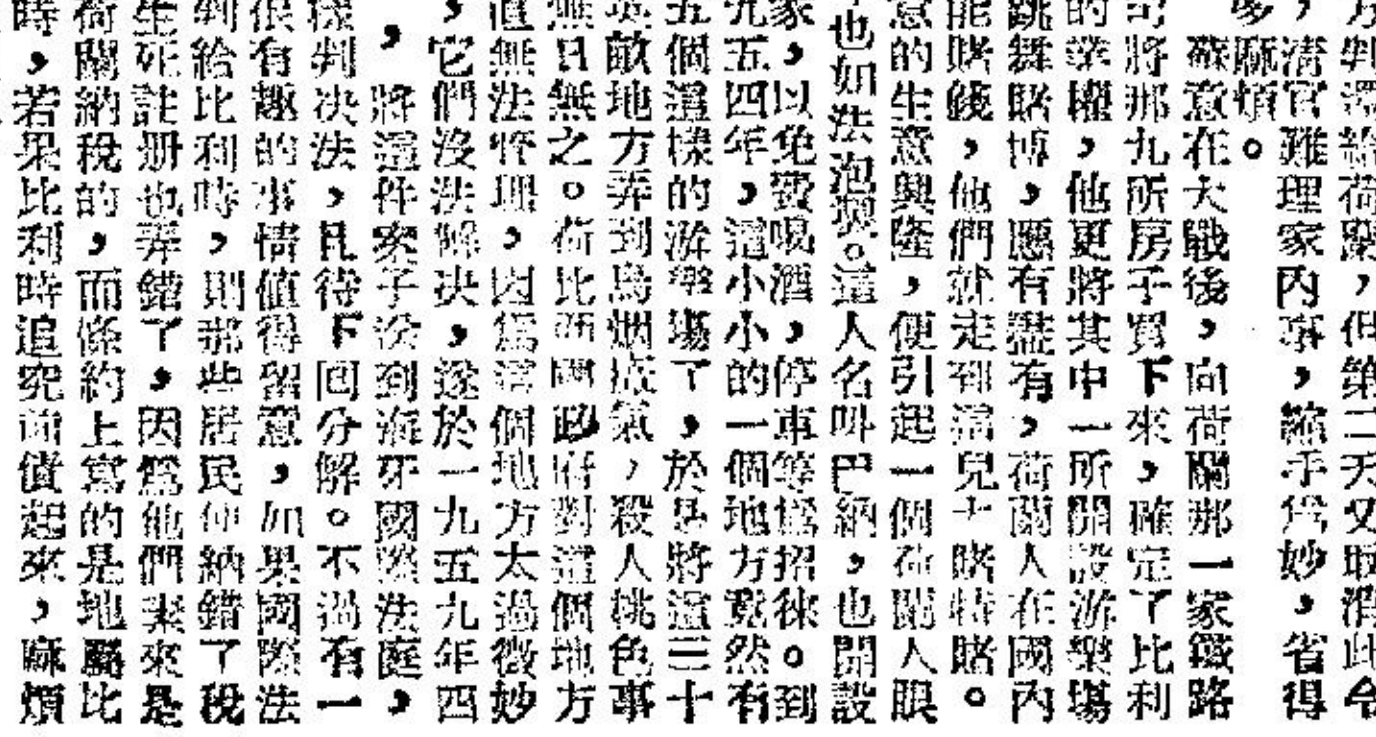 方判還給荷蘭，但第二天又取消此令
，清官難理家內事，縮手為妙，省得
麻煩。
蘇意在大戰後，向荷蘭那一家鐵路
司將那九所房子買下來，確定了比利
的業權，他更將其中一所開設游樂場
跳舞賭博，應有盡有，荷蘭人在國內
能賭錢，他們就走到這兒大賭特賭。
意的生意興隆，便引起一個荷蘭人眼
也如法泡製。這人名叫巴納，也開設
家，以免費吸酒，停車等為招徠。到
九五四年，這小小的一個地方竟然有
五個這樣的游樂場了，於是將這三十
敵地方弄到烏烟瘴氣，殺人桃色事
無日無之。荷比兩國政府對這個地方
直無法管理，因為這個地方太過微妙
，它們沒法解决，遂於一九五九年四
，將這件案子交到海牙國際法庭，
樣判决法，且待下回分解。不過有一
很有趣的事情值得留意，如果國際法
判給比利時，則那些居民便納錯了稅
生死註册也弄錯了，因為他們素來是
荷蘭納稅的，而條約上寫的是地屬比
時，若果比利時追究前債起來，麻煩